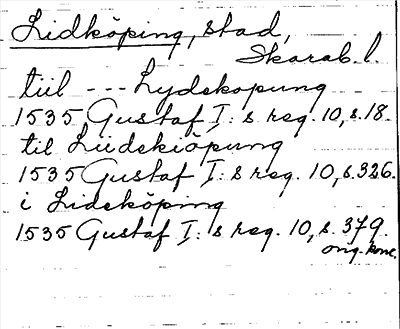 Lidköping, stad,
Skarab. l.
tiil --- Lydskopung
1535 Gustaf I: s reg. 10, s. 18.
til Liidskiöpung
1535 Gustaf I: s reg. 10, s. 326.
i Lidsköping
1535 Gustaf I: s reg. 10, s. 379.
orig. konc.